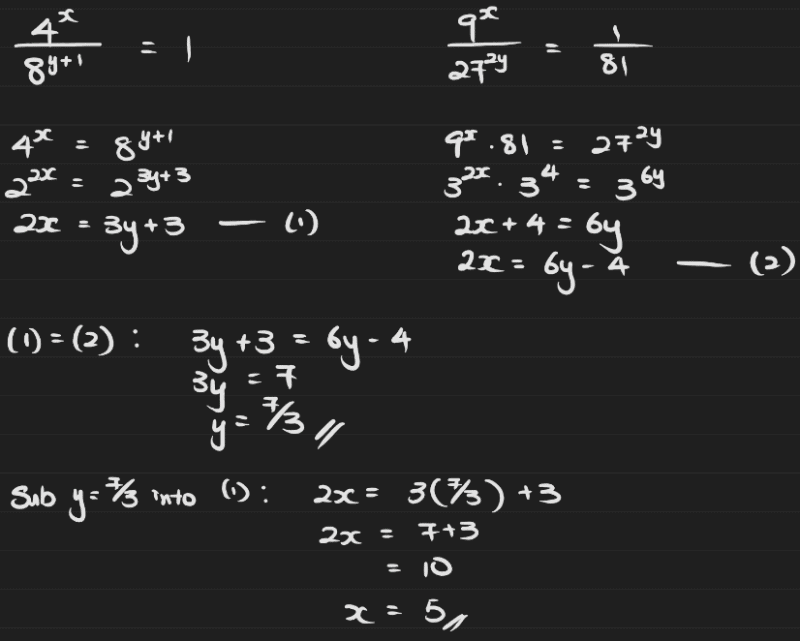 4^x / 8^(y+1) = 1
4^x = 8^(y+1)
2^(2x) = 2^(3y+3)
2x = 3y+3 — (1)
9^x / 27^(2y) = 1/81
9^x · 81 = 27^(2y)
3^(2x) · 3^4 = 3^(6y)
2x + 4 = 6y
2x = 6y - 4 — (2)
(1) = (2) : 3y + 3 = 6y - 4
3y = 7
y = 7/3 //
Sub y = 7/3 into (1) : 2x = 3(7/3) + 3
2x = 7+3
= 10
x = 5 //